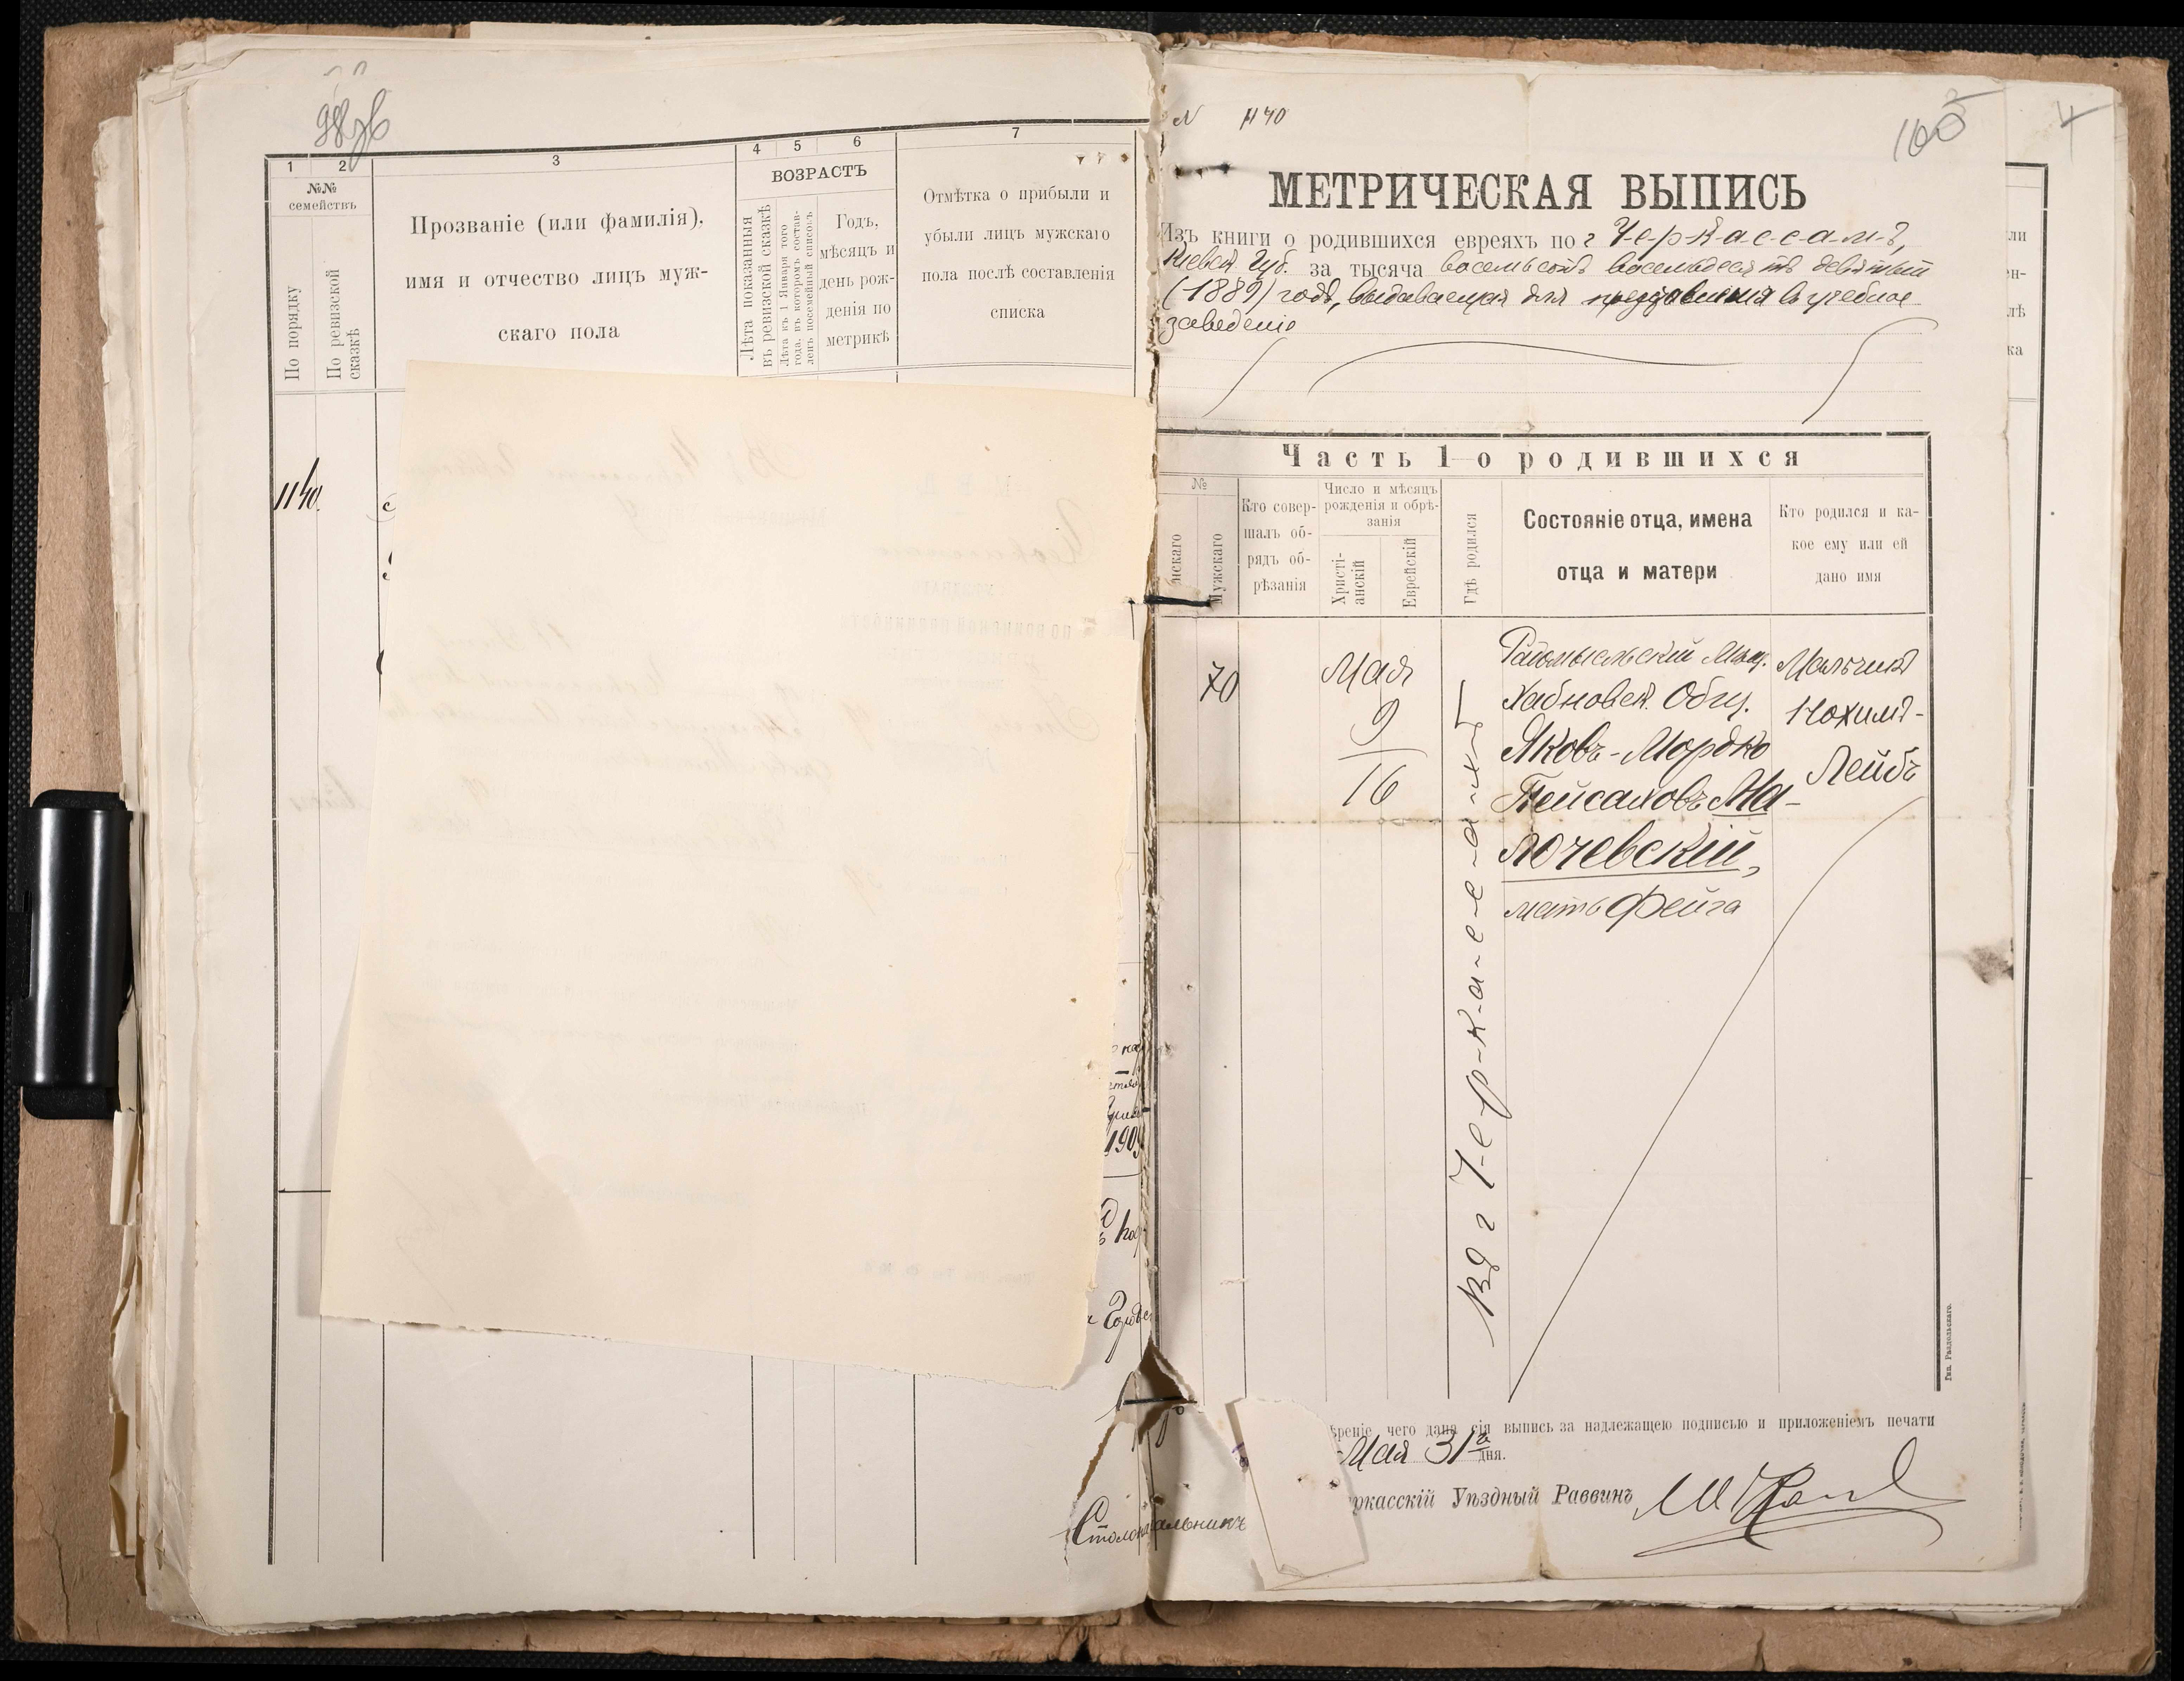 98об
1
2
3
4
5
6
7
№№
семействъ
По порядку
По ревизской
сказкѣ
Прозваніе (или фамилія),
имя и отчество лицъ муж-
скаго пола
ВОЗРАСТЪ
Лѣта показанныя
въ ревизской сказкѣ
Лѣта къ 1 Января того
года, въ которомъ состав-
ленъ посемейный списокъ
Годъ,
мѣсяцъ и
день рож-
денія по
метрикѣ
Отмѣтка о прибыли и
убыли лицъ мужскаго
пола послѣ составленія
списка
1140.
190
Столоначальникъ
№ 1140
100
4
МЕТРИЧЕСКАЯ ВЫПИСЬ
Изъ книги о родившихся евреяхъ по г Ч-е-р-к-а-с-с-а-м-ъ,
Кіевск. Губ. за тысяча восемьсотъ восемьдесятъ девятый
(1889) годъ, выдаваемая для представленія въ учебное
заведеніе
Часть 1-о родившихся
№
нскаго
Мужскаго
Кто совер-
шалъ об-
рядъ об-
рѣзанія
Число и мѣсяцъ
рожденія и обрѣ-
занія
Христі-
анскій
Еврейскій
Гдѣ родился
Состояніе отца, имена
отца и матери
Кто родился и ка-
кое ему или ей
дано имя
70
Мая
9
16
Въ г Ч-е-р-к-а-с-с-а-х-ъ
Радомысльскій Мѣщ.
Хабновск. Общ.
Яковъ-Мордко
Пейсаховъ Ма-
лочевскій,
мать Фейга
Мальчикъ
Нохимъ-
Лейбъ
Тип. Раздольскаго.
ѣреніе чего дана сія выпись за надлежащею подписью и приложеніемъ печати
Мая 31го дня.
ркасскій Уѣздный Раввинъ